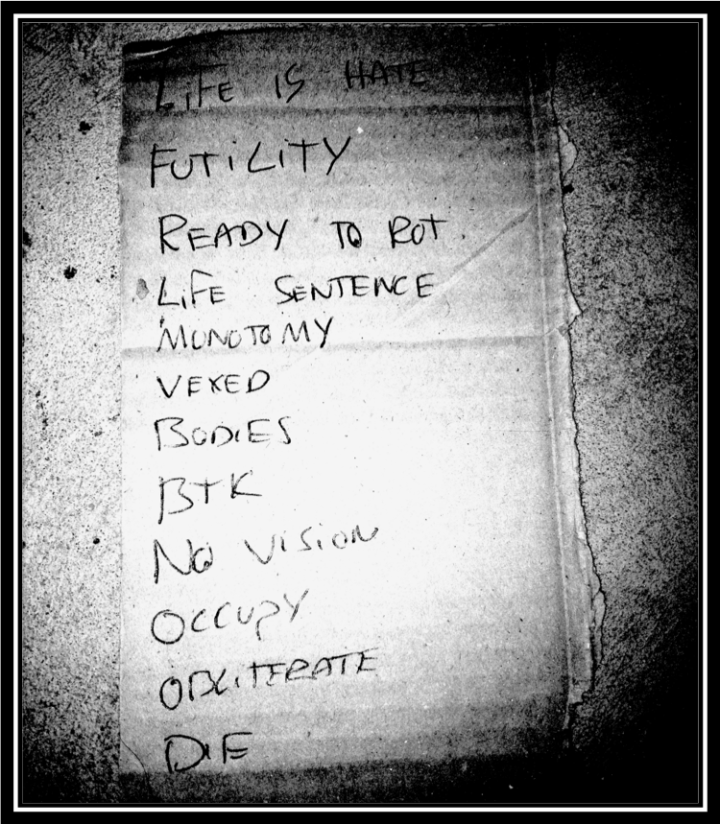 LiFE IS HATE
FUTiLiTY
READY TO ROT
LiFE SENTENCE
MONOTOMY
VEXED
BODiES
BTK
NO ViSION
OCCUPY
OBLiTERATE
DiE